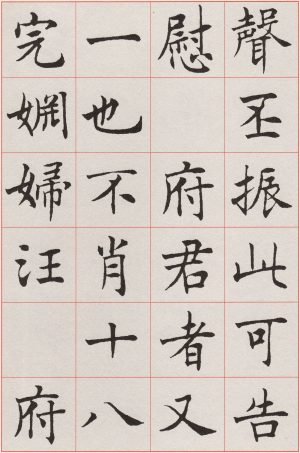 聲丕振此可告
慰　府君者又
一也不肖十八
完婣婦汪　府